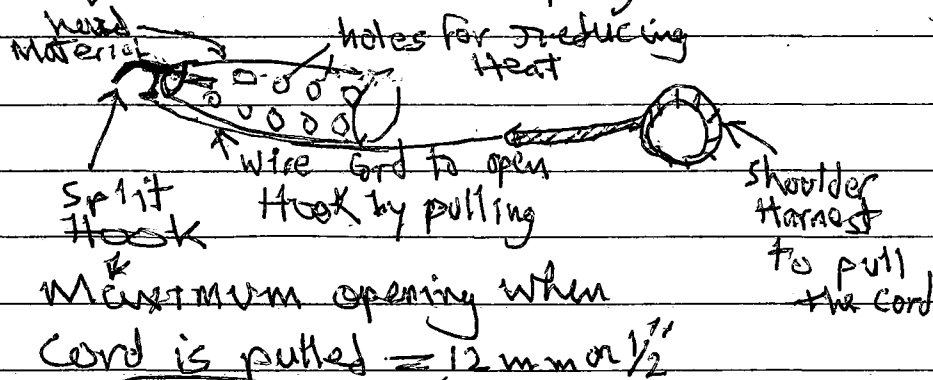 hard
Material
holes for reducing
Heat
Wire Cord to open
Hook by pulling
Split
Hook
Shoulder
Harnest
to pull
the Cord
Maximum opening when
Cord is pulled = 12 mm or 1/2"